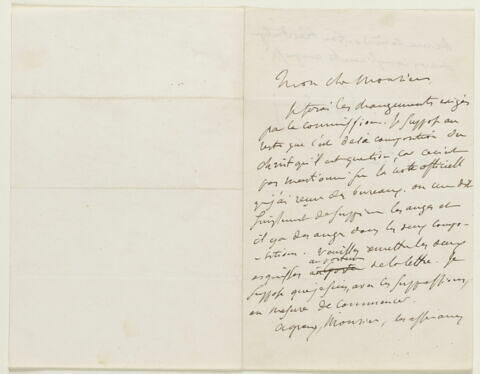 Mon cher Monsieur
Je ferai les changements exigés
par la commission. Je suppose au
reste que c'est de la composition du
christ qu'il est question, car ce n'est
pas mentionné sur la note officielle
que j'ai reçue des bureaux. on me dit
Seulement de supprimer les anges et
il y a des anges dans les deux compo-
-sitions. Veuillez remettre les deux
au porteur
esquisses de la lettre. Je
suppose que je suis, avec ces suppressions,
en mesure de commencer.
Agréez, Monsieur, les assurances